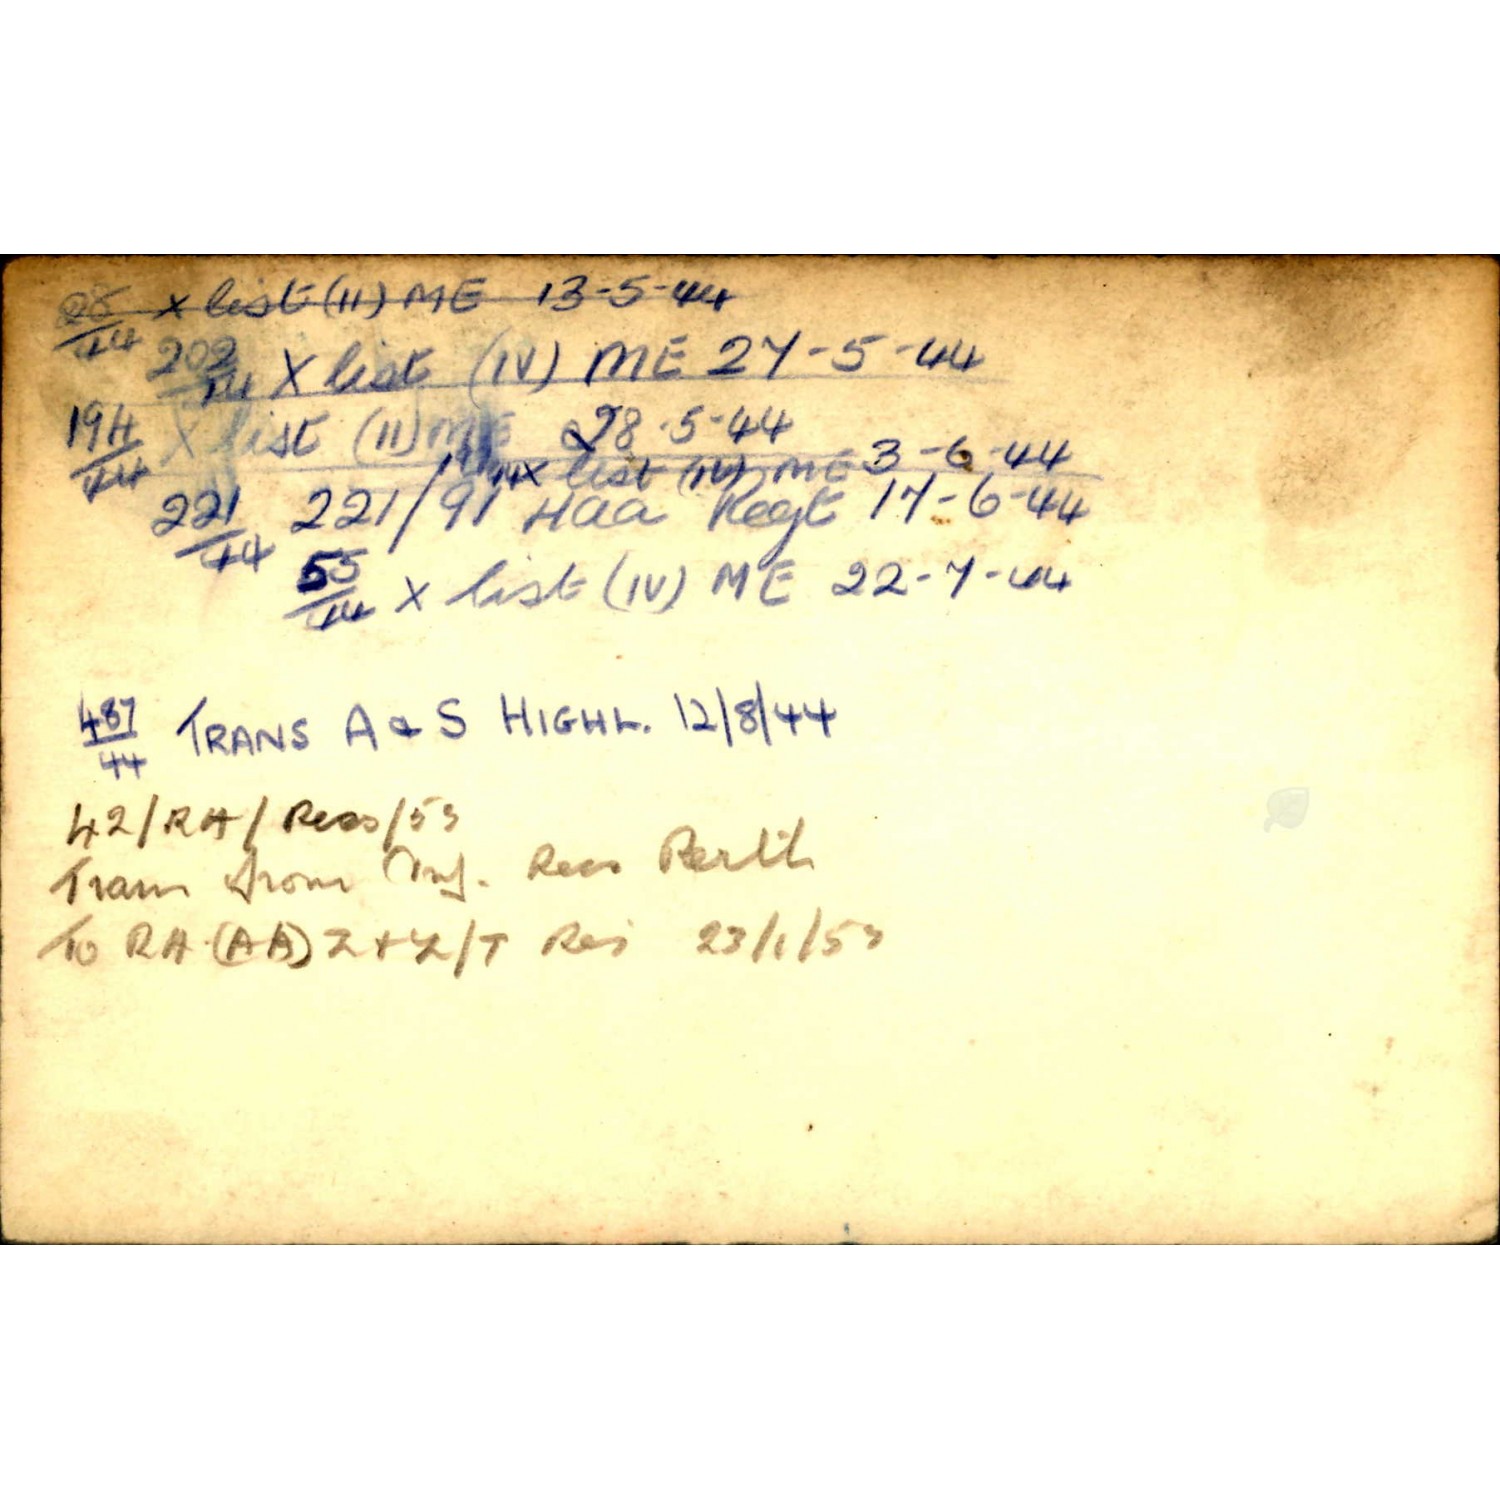 28/44 x list (II) ME 13-5-44
202/44 X list (IV) ME 27-5-44
194/44 X list (II) ME 28-5-44
x list (IV) ME 3-6-44
221/44 221/91 HAA Regt 17-6-44
55/44 x list (IV) ME 22-7-44
487/44 TRANS A & S HIGHL. 12/8/44
42/RA/Recs/53
Trans from Inf. Recs Perth
To RA (AA) Z+Z/T Res 23/1/53